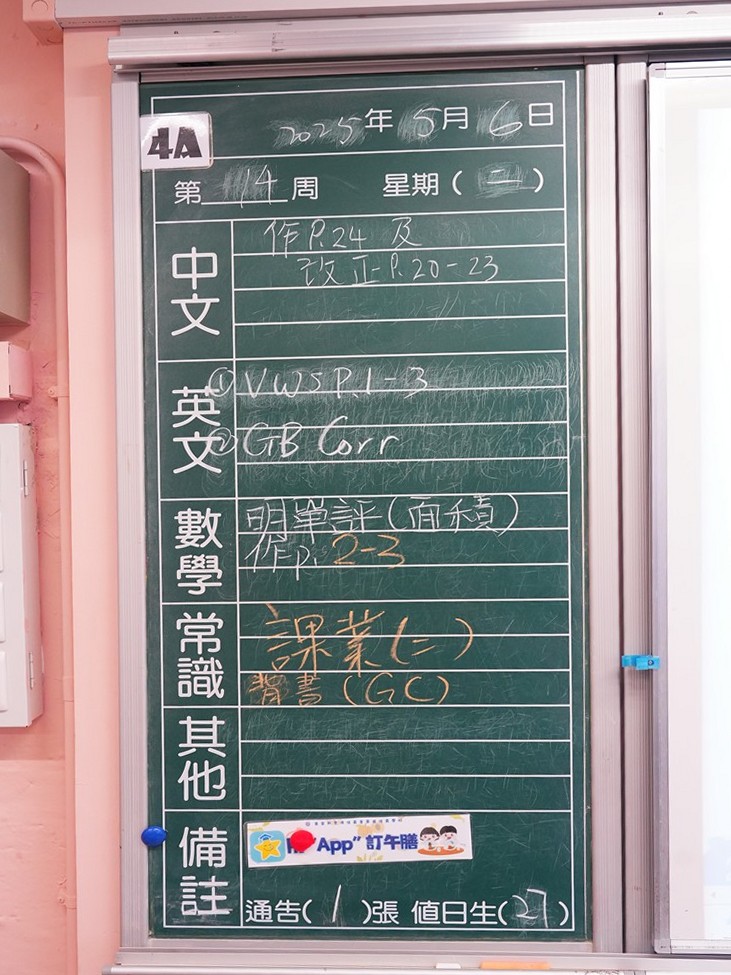 4A
2025年5月6日
第14周 星期(二)
中文
作P.24 及
改正P.20-23
英文
①VWS P.1-3
②GB Corr
數學
明單評(面積)
作p. 2-3
常識
課業(二)
背書(GC)
其他
備註
"App"訂午膳
通告(1)張 值日生(27)